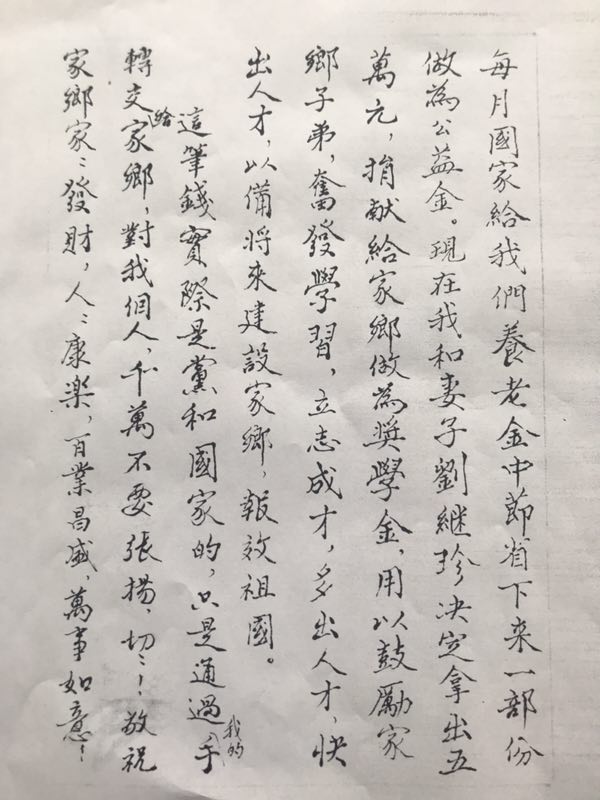 每月國家給我們養老金中節省下来一部份
做為公益金。現在我和妻子劉継珍决定拿出五
萬元，捐献給家鄉做為奨學金，用以鼓勵家
鄉子弟，奮發學習，立志成才，多出人才，快
出人才，以備將來建設家鄉，報效祖國。
這筆錢實際是黨和國家的，只是通過我的手
轉交給家鄉，對我個人，千萬不要張揚，切〻！敬祝
家鄉家〻發財，人〻康樂，百業昌盛，萬事如意！